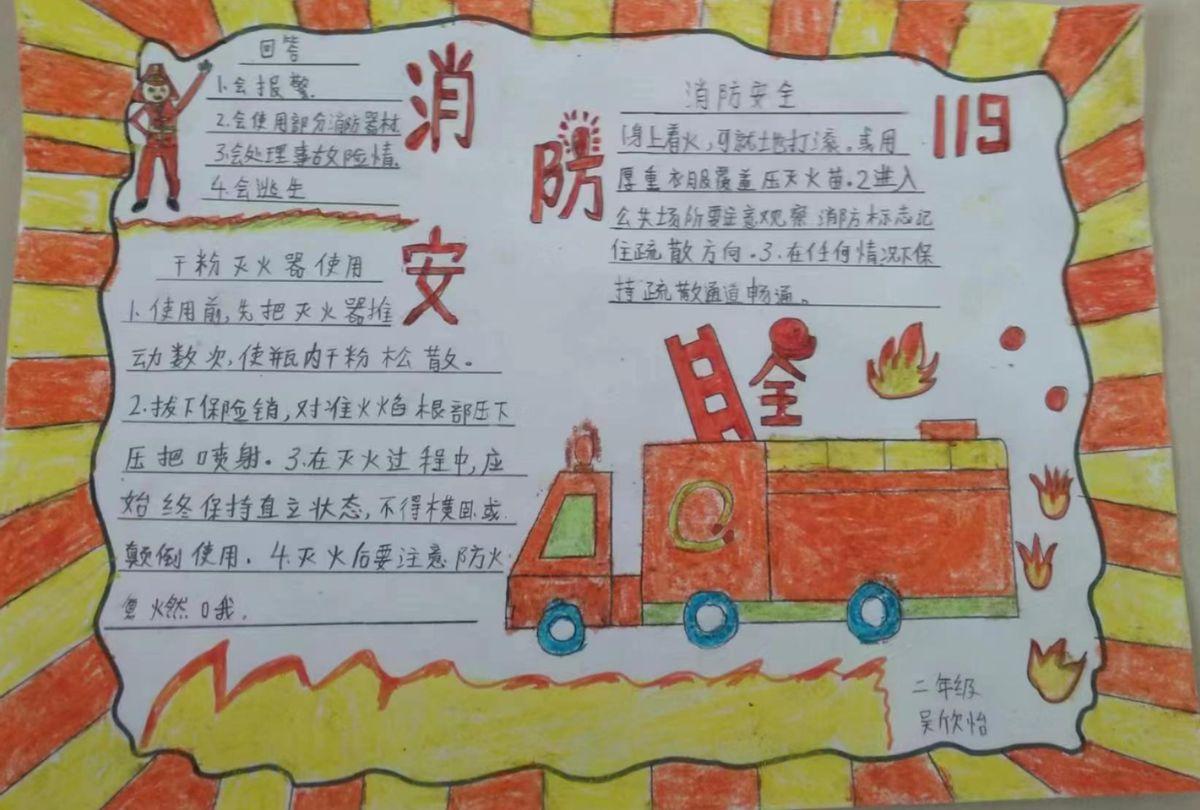 回答
1.会报警.
2.会使用部分消防器材
3.会处理事故险情.
4.会逃生
消
防
安
全
119
消防安全
1身上着火,可就地打滚。或用
厚重衣服覆盖压灭火苗.2进入
公共场所要注意观察消防标志记
住疏散方向.3.在任何情况下保
持疏散通道畅通。
干粉灭火器使用
1.使用前,先把灭火器推
动数次,使瓶内干粉松散。
2.拔下保险销,对准火焰根部压下
压把喷射。3.在灭火过程中,应
始终保持直立状态,不得横卧或
颠倒使用.4.灭火后要注意防火
复火燃哦.
二年级
吴欣怡